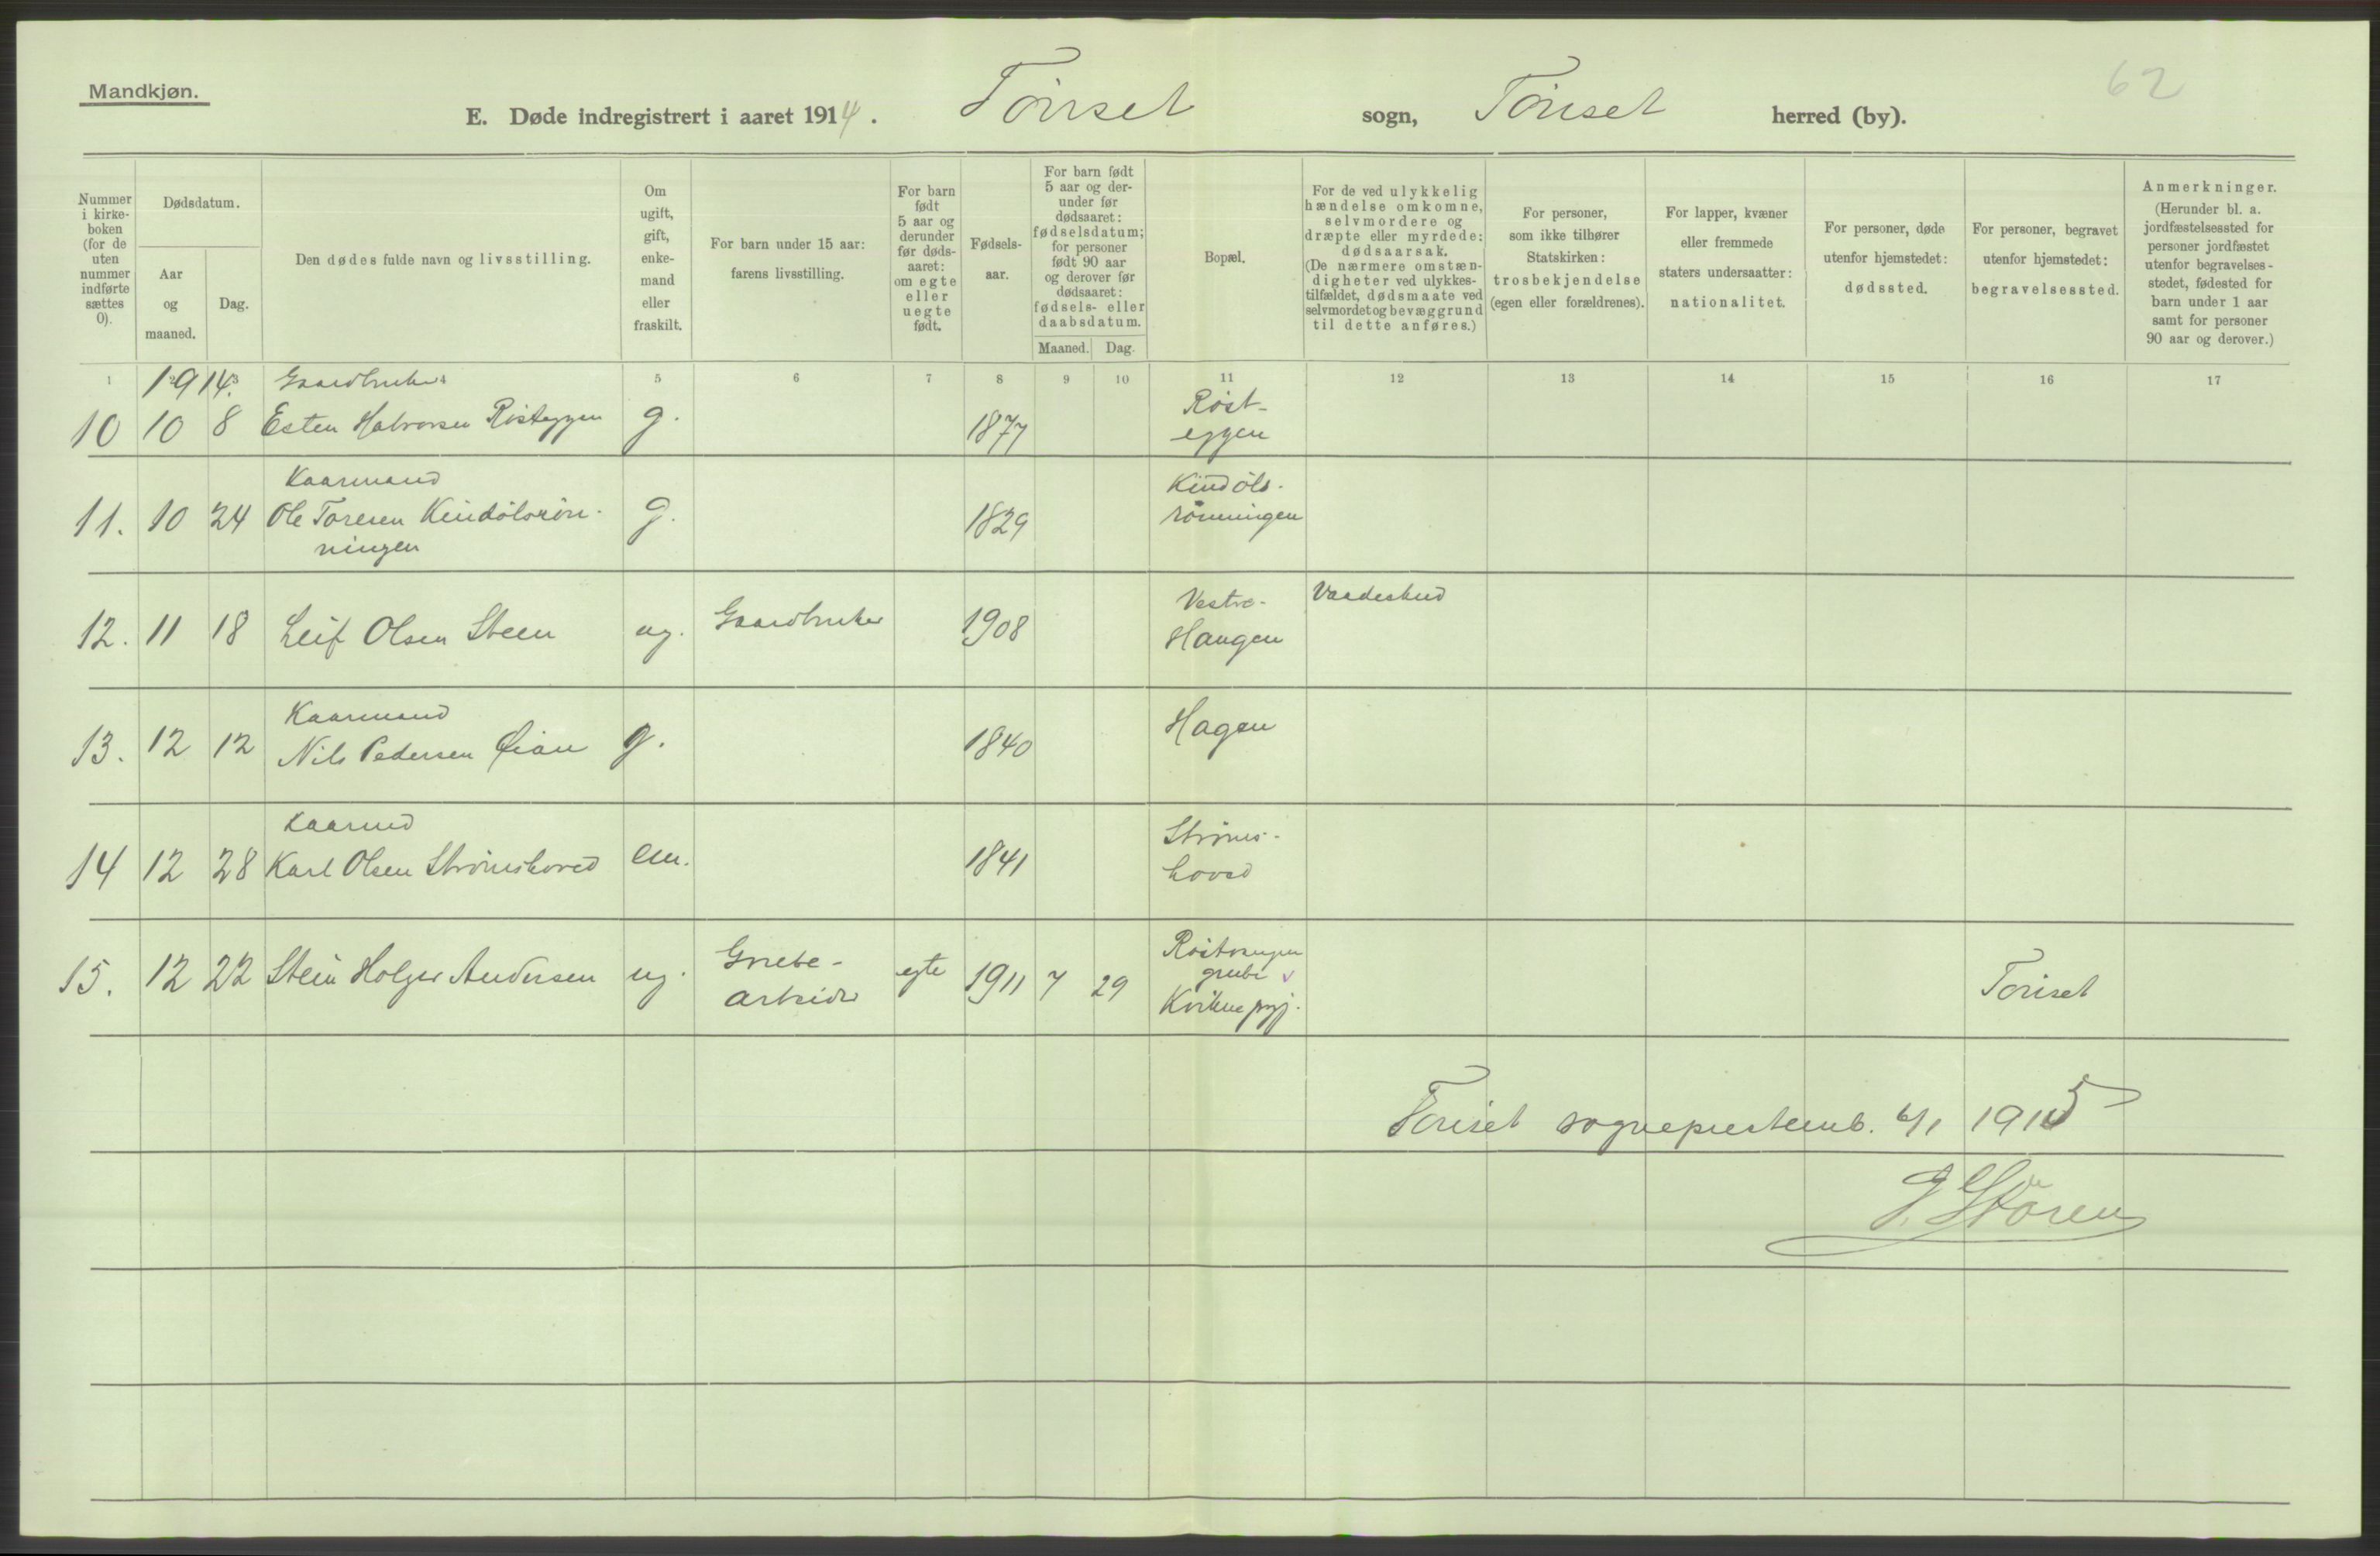 Mandkjøn.
62
E. Døde indregistrert i aaret 1914. Tönset sogn, Tönset herred (by).
Nummer i kirke-boken (for de uten nummer indførte sættes 0).
Dødsdatum.
Aar og maaned.
Dag.
Den dødes fulde navn og livsstilling.
Om ugift, gift, enke-mand eller fraskilt.
For barn under 15 aar: farens livsstilling.
For barn født 5 aar og derunder før døds-aaret: om egte eller uegte født.
Fødsels-aar.
For barn født 5 aar og der-under før dødsaaret: fødselsdatum; for personer født 90 aar og derover før dødsaaret: fødsels- eller daabsdatum.
Maaned. Dag.
Bopæl.
For de ved ulykkelig hændelse omkomne, selvmordere og dræpte eller myrdede: dødsaarsak. (De nærmere omstæn-digheter ved ulykkes-tilfældet, dødsmaate ved selvmordet og bevæggrund til dette anføres.)
For personer, som ikke tilhører Statskirken: trosbekjendelse (egen eller forældrenes).
For lapper, kvæner eller fremmede staters undersaatter: nationalitet.
For personer, døde utenfor hjemstedet: dødssted.
For personer, begravet utenfor hjemstedet: begravelsessted.
Anmerkninger. (Herunder bl. a. jordfæstelsessted for personer jordfæstet utenfor begravelses-stedet, fødested for barn under 1 aar samt for personer 90 aar og derover.)
1 2 3 4 5 6 7 8 9 10 11 12 13 14 15 16 17
1914. Gaardbruker
10 10 8 Esten Halvorsen Røsteggen g. 1877 Røst-
eggen
Kaarmand Kindöls-
11. 10 24 Ole Toresen Kindölsrön- g. 1829 rönningen
ningen
12. 11 18 Leif Olsen Steen ug. Gaardbruker 1908 Vestre- Vaadeskud
Haugen
Kaarmand
13. 12 12 Nils Pedersen Øian g. 1840 Hagen
Kaarmd Ströms-
14 12 28 Karl Olsen Strömshoved em. 1841 hoved
15. 12 22 Stein Holger Andersen ug. Grube- egte 1911 7 29 Röstvangen
arbeider grube v Tönset
Kvikne prgj.
Tönset sogneprestemb. 6/1 1915
J. Stören